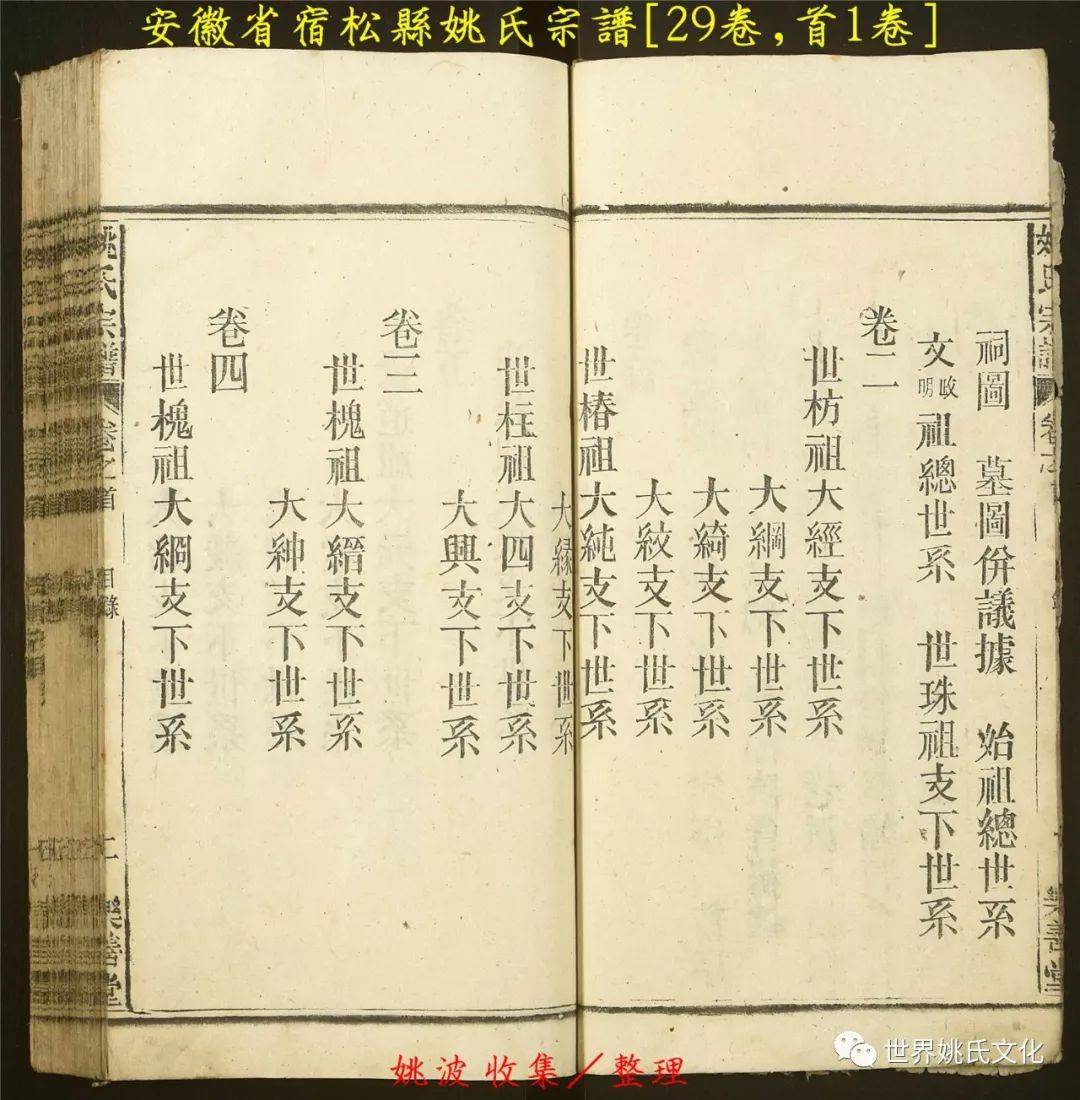 安徽省宿松縣姚氏宗譜[29卷,首1卷]
祠圖 墓圖併議據 始祖總世系
文政明祖總世系 世珠祖支下世系
卷二
世枋祖大經支下世系
大綱支下世系
大綺支下世系
大紋支下世系
世椿祖大純支下世系
大緣支下世系
世柱祖大四支下世系
大興支下世系
卷三
世槐祖大縉支下世系
大紳支下世系
卷四
世槐祖大綱支下世系
姚氏宗譜 卷之首 目錄 二 樂善堂
姚波收集/整理
世界姚氏文化